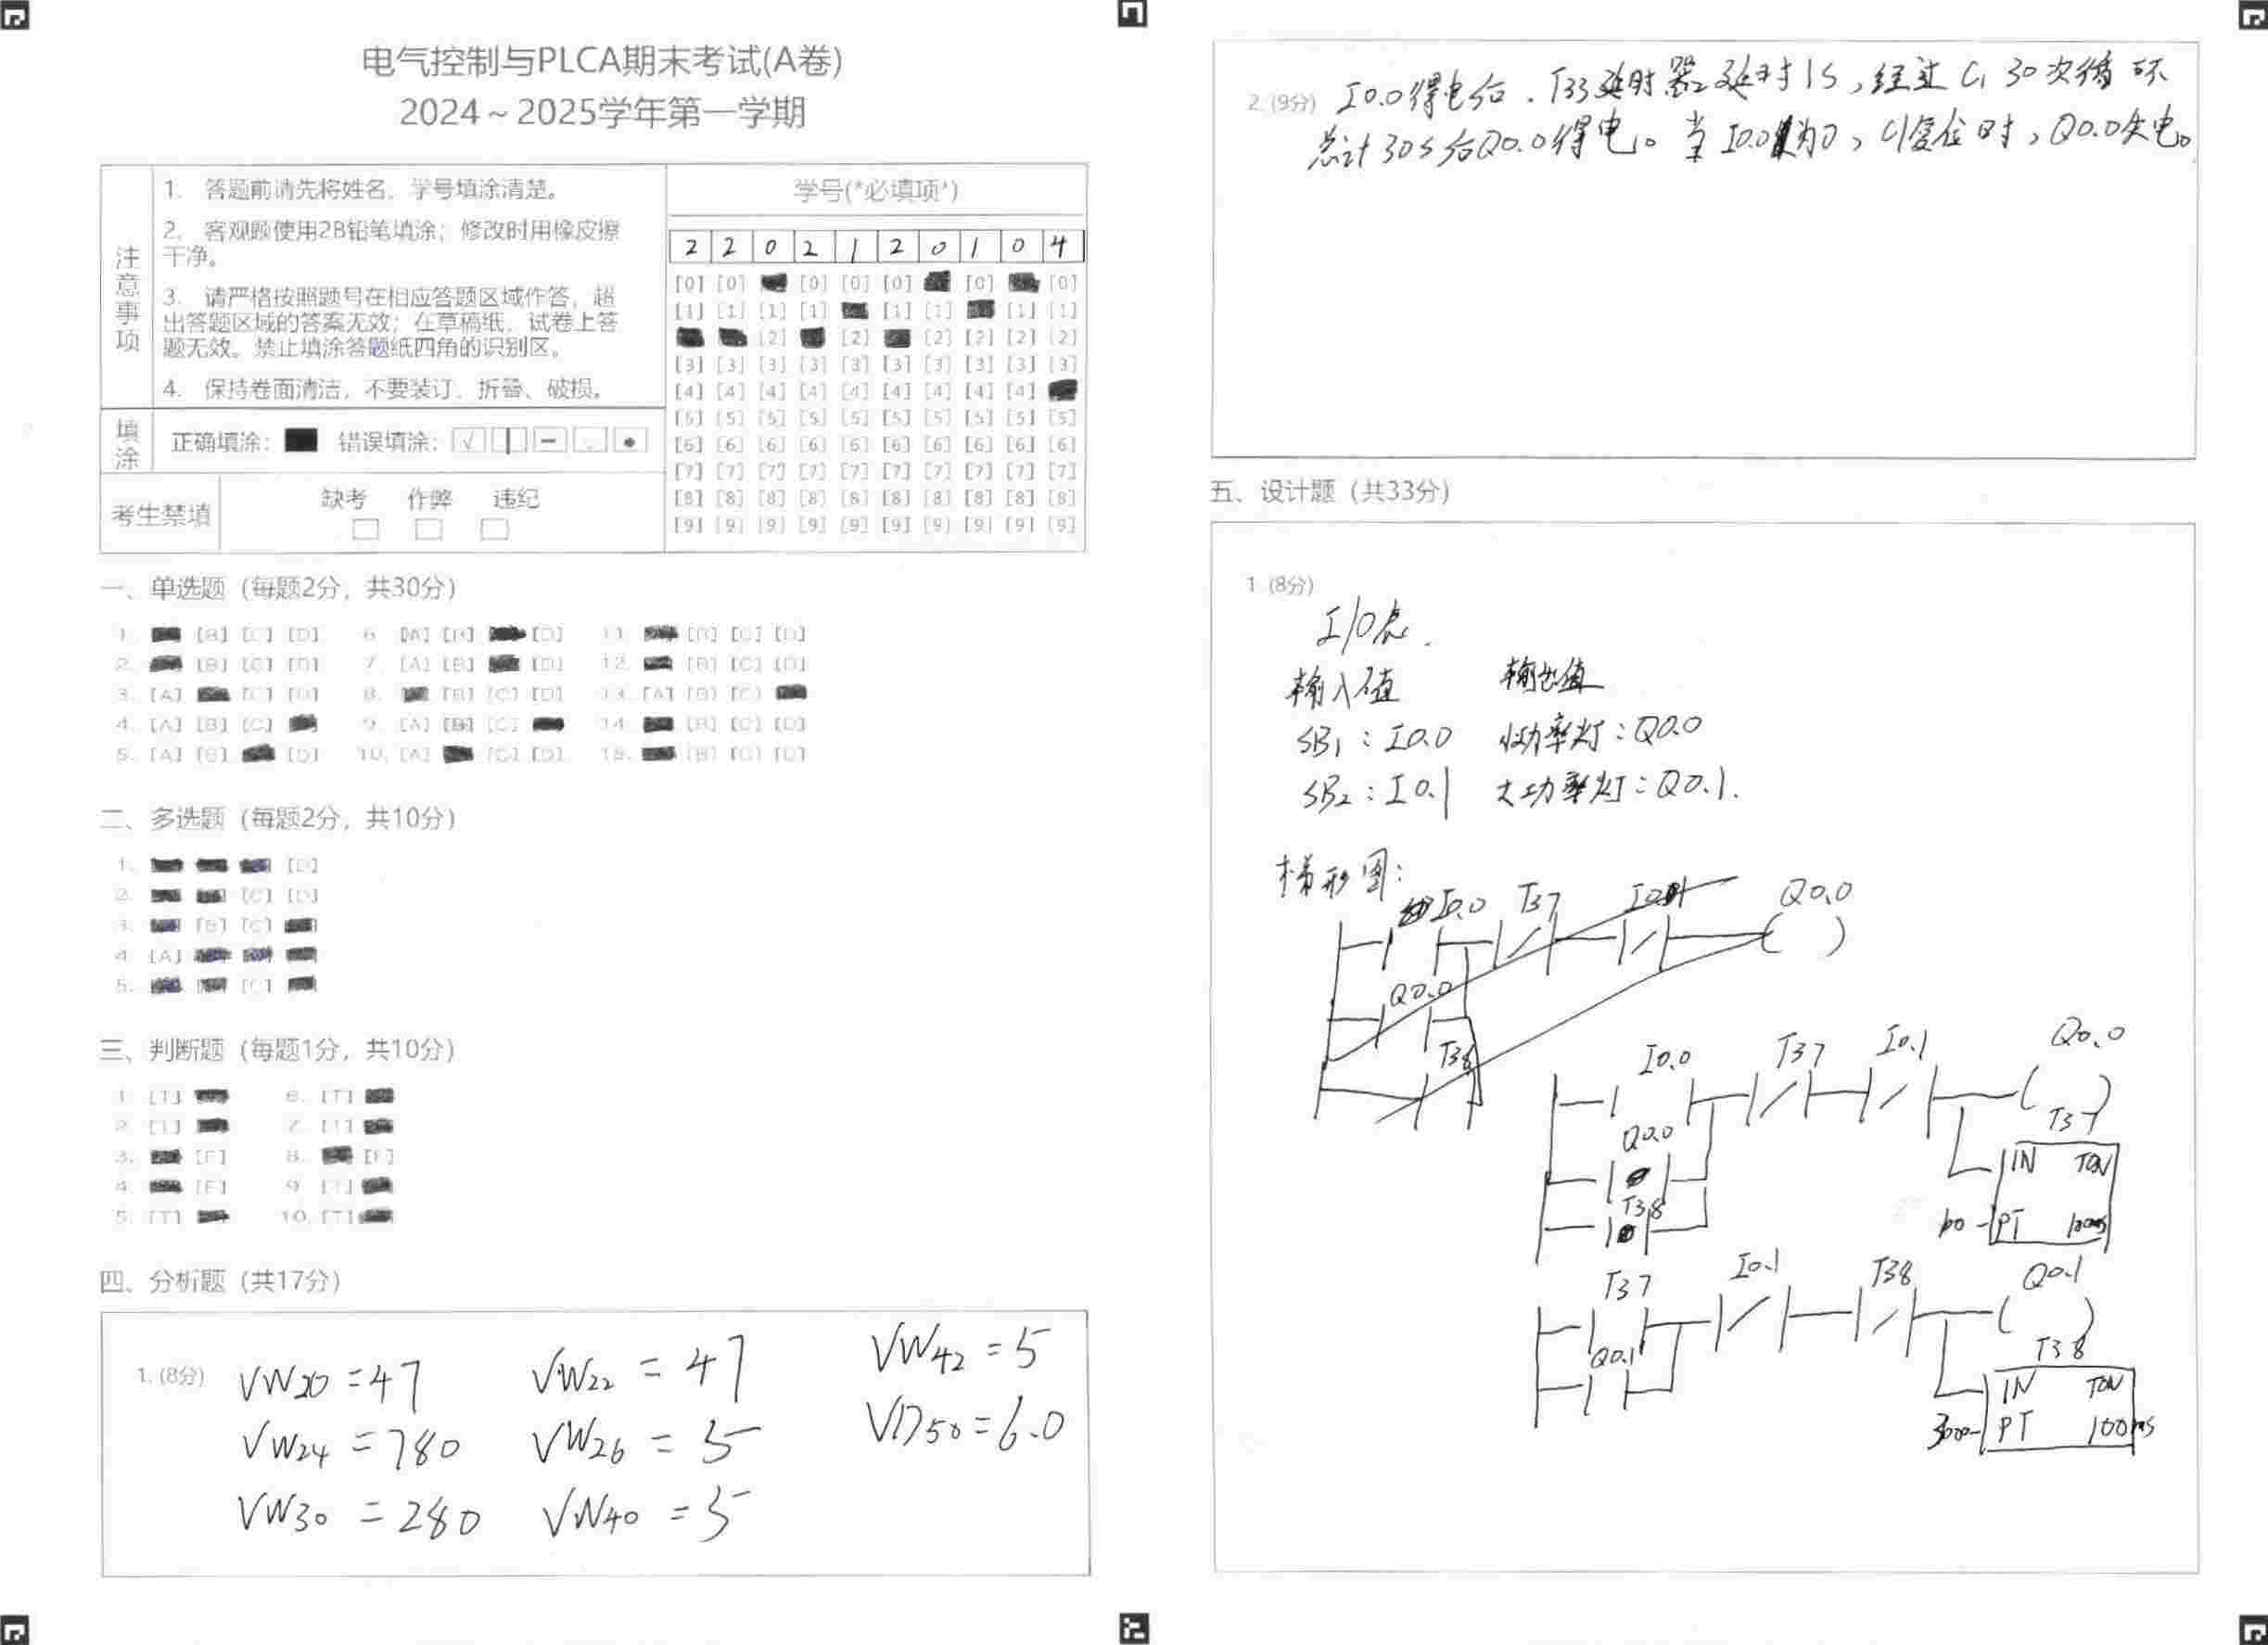 电气控制与PLCA期末考试(A卷)
2024～2025学年第一学期
注意事项
1. 答题前请先将姓名、学号填涂清楚。
2. 客观题使用2B铅笔填涂；修改时用橡皮擦
干净。
3. 请严格按照题号在相应答题区域作答，超
出答题区域的答案无效；在草稿纸、试卷上答
题无效。禁止填涂答题纸四角的识别区。
4. 保持卷面清洁，不要装订、折叠、破损。
填涂
正确填涂： 错误填涂：
考生禁填
缺考 作弊 违纪
学号(*必填项*)
2 2 0 2 1 2 0 1 0 4
[0] [0] [0] [0] [0] [0] [0]
[1] [1] [1] [1] [1] [1] [1] [1]
[2] [2] [2] [2] [2] [2]
[3] [3] [3] [3] [3] [3] [3] [3] [3] [3]
[4] [4] [4] [4] [4] [4] [4] [4] [4]
[5] [5] [5] [5] [5] [5] [5] [5] [5] [5]
[6] [6] [6] [6] [6] [6] [6] [6] [6] [6]
[7] [7] [7] [7] [7] [7] [7] [7] [7] [7]
[8] [8] [8] [8] [8] [8] [8] [8] [8] [8]
[9] [9] [9] [9] [9] [9] [9] [9] [9] [9]
一、单选题（每题2分，共30分）
1. [B] [C] [D] 6. [A] [B] [D] 11. [B] [C] [D]
2. [B] [C] [D] 7. [A] [B] [D] 12. [B] [C] [D]
3. [A] [C] [D] 8. [B] [C] [D] 13. [A] [B] [C]
4. [A] [B] [C] 9. [A] [B] [C] 14. [B] [C] [D]
5. [A] [B] [D] 10. [A] [C] [D] 15. [B] [C] [D]
二、多选题（每题2分，共10分）
1. [D]
2. [C] [D]
3. [B] [C]
4. [A]
5. [C]
三、判断题（每题1分，共10分）
1. [T] 6. [T]
2. [T] 7. [T]
3. [F] 8. [F]
4. [F] 9. [T]
5. [T] 10. [T]
四、分析题（共17分）
1. (8分)
VW20 = 47 VW22 = 47 VW42 = 5
VW24 = 780 VW26 = 5 VD50 = 6.0
VW30 = 280 VW40 = 5
2. (9分) I0.0得电后．T33延时器延时1S，经过C1 30次循环
总计30S后Q0.0得电。当I0.0为0，C1复位时，Q0.0失电。
五、设计题（共33分）
1 (8分)
I/O表．
输入值 输出值
SB1：I0.0 小功率灯：Q0.0
SB2：I0.1 大功率灯：Q0.1.
梯形图：
I0.0 T37 Q0.0
Q0.0
T38
I0.0 T37 I0.1 Q0.0
Q0.0
T37
IN TON
T38
PT 100ms
T37 I0.1 T38 Q0.1
Q0.1
T38
IN TON
3000- PT 100ms